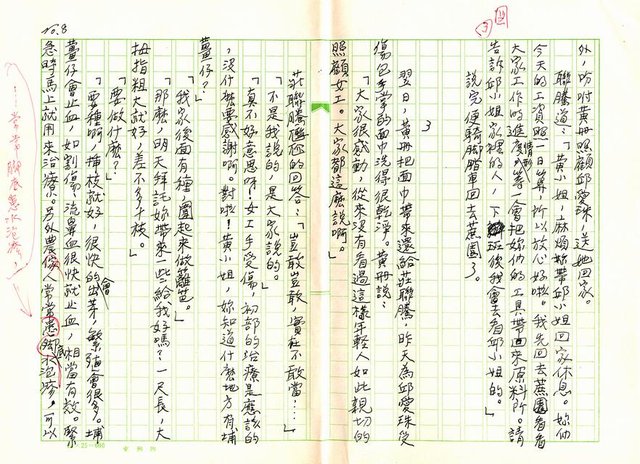 外，吩咐黃冊照顧邱愛珠，送她回家。
聯騰道：「黃小姐，麻煩妳帶邱小姐回家休息。妳們
今天的工資照一日算，所以放心好啦。我先回去蔗園看看
大家工作的進度情形等，會把妳們的工具帶回來原料所。請
告訴邱小姐家裡的人，下班後我會去看邱小姐的。」
說完便騎腳踏車回去蔗園了。
3
翌日，黃冊把面巾帶來還給莊聯騰，昨天為邱愛珠受
傷包手掌的面巾洗得很乾淨。黃冊說：
「大家很感動，從來沒有看過這樣年輕人如此親切的
照顧女工。大家都這麼說啊。」
莊聯騰尷尬的回答：「豈敢豈敢，實在不敢當……」
「不是我說的，是大家說的。」
「真不好意思咪！女工手受傷，初部的治療是應該的
，沒什麼要感謝啊。對啦！黃小姐，妳知道什麼地方有埔
薑仔？」
「我家後面有種，圍起來做籬笆。」
「那麼，明天拜託妳帶來一些給我好嗎？一尺長，大
拇指粗大就好，差不多十枝。」
「要做什麼？」
「要種啊，插枝就好，很快的會出芽，繁殖會很多。埔
薑仔會止血，如割傷，流鼻血很快就止血，相當有效。緊
急時馬上就用來治療。另外農家人常常患腳底水泡疹，可以
10.8